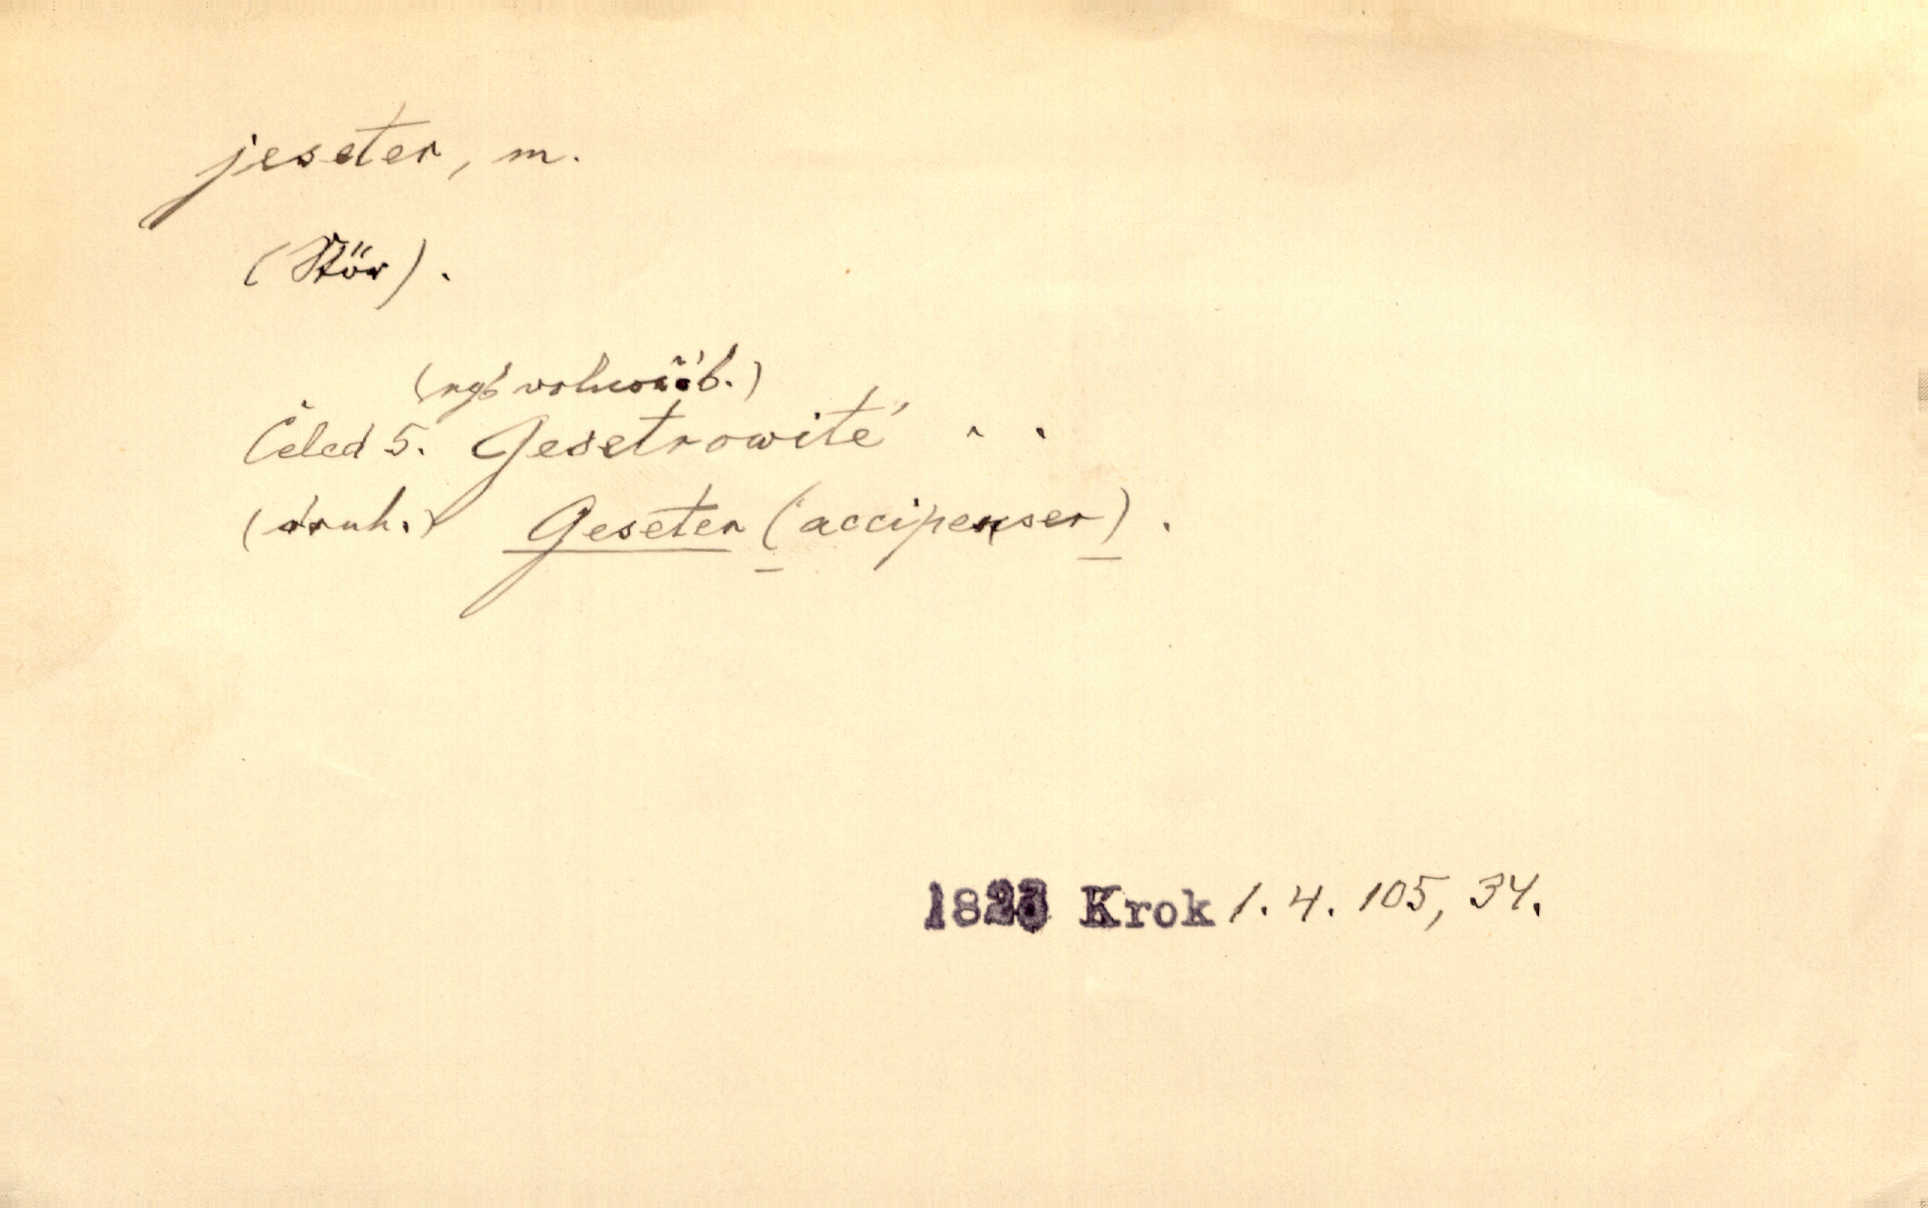 jeseter, m.
(Stör).
Čeleď 5. Gesetrowité . .
(druh.) Geseter (accipenser).
1823 Krok 1. 4. 105, 34.